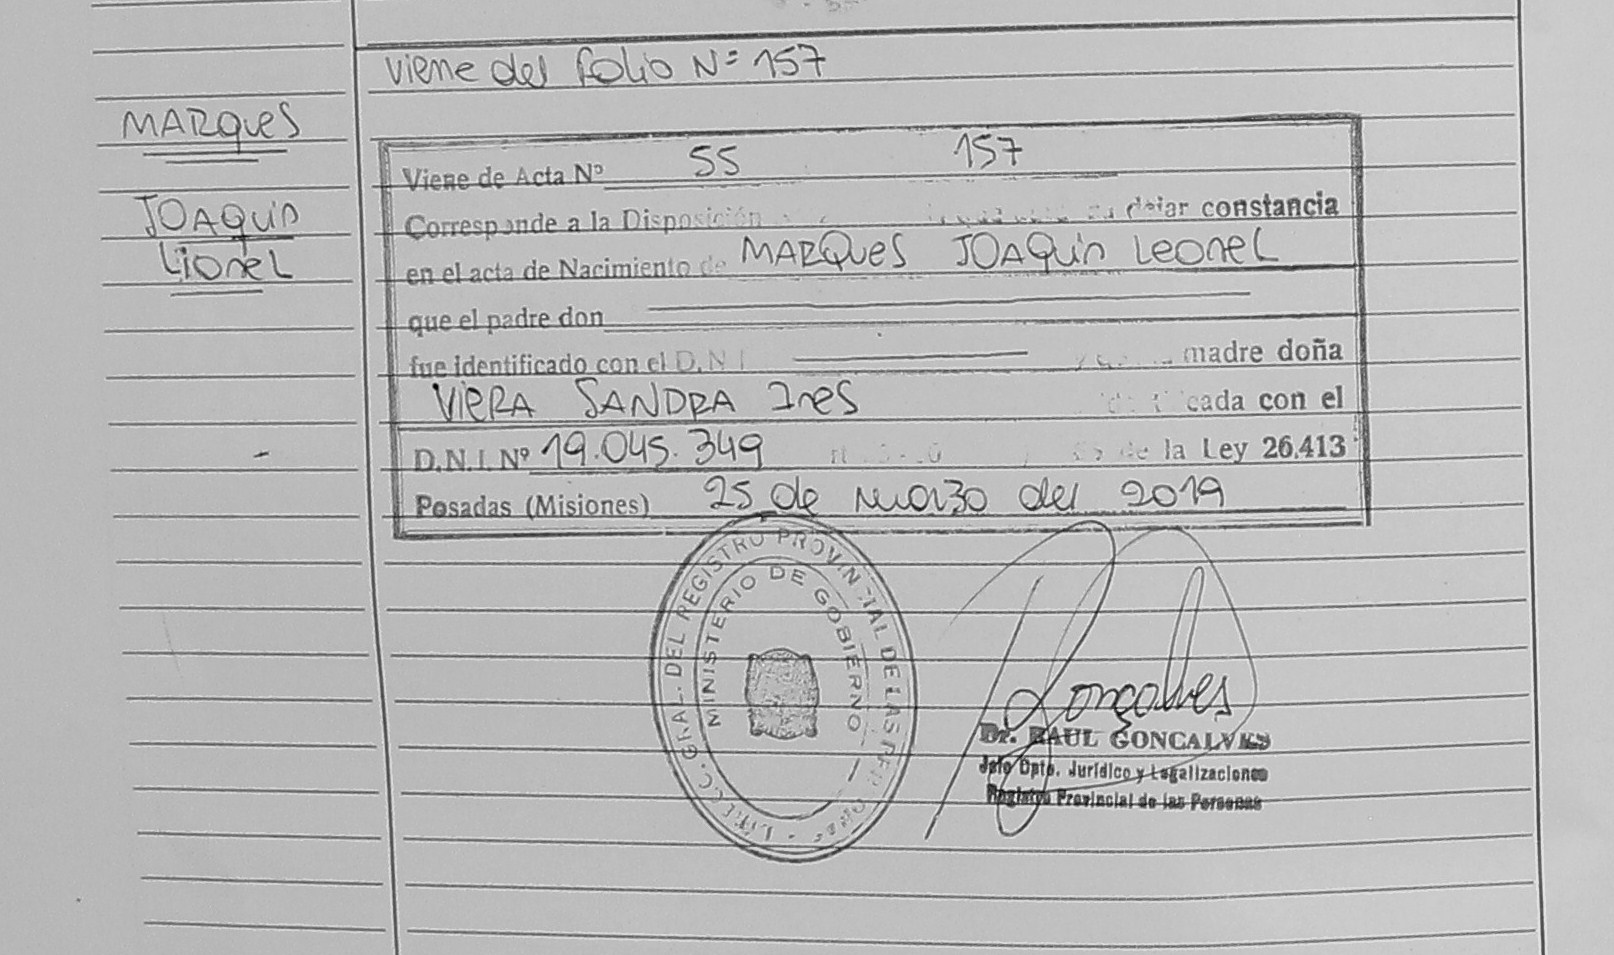 viene del folio Nº 157
MARQUES
JOAQUIN
LIONEL
Viene de Acta Nº 55 157
Corresponde a la Disposición dejar constancia
en el acta de Nacimiento de MARQUES JOAQUIN LEONEL
que el padre don
fue identificado con el D.N.I. madre doña
VIERA SANDRA INES cada con el
D.N.I. Nº 19.045.349 de la Ley 26.413
Posadas (Misiones) 25 de marzo del 2019
GRAL. DEL REGISTRO PROVINCIAL DE LAS
MINISTERIO DE GOBIERNO
Gonçalves
Dr. RAUL GONCALVES
Jefe Dpto. Jurídico y Legalizaciones
Registro Provincial de las Personas